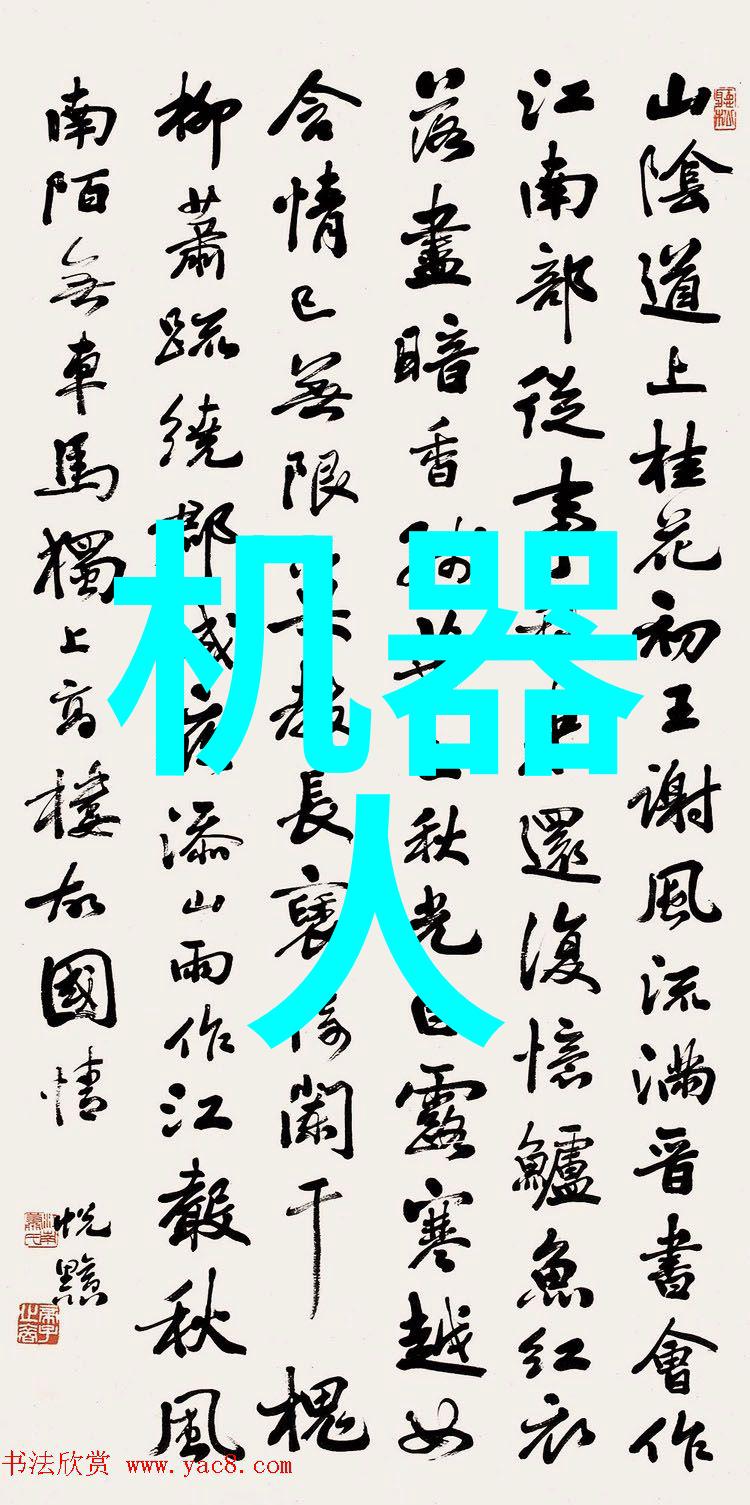 山陰道上桂花初王謝風流滿晉書會作
江南部從事還復憶鱸魚紅衣
落盡暗香殘葉上秋光白露寒越女
含情已無限莫教長褎倚闌干 槐
柳蕭疏繞郡城夜添山雨作江聲秋風
南陌無車馬獨上高樓故國情
机器
人
书法欣赏 www.yac8.com